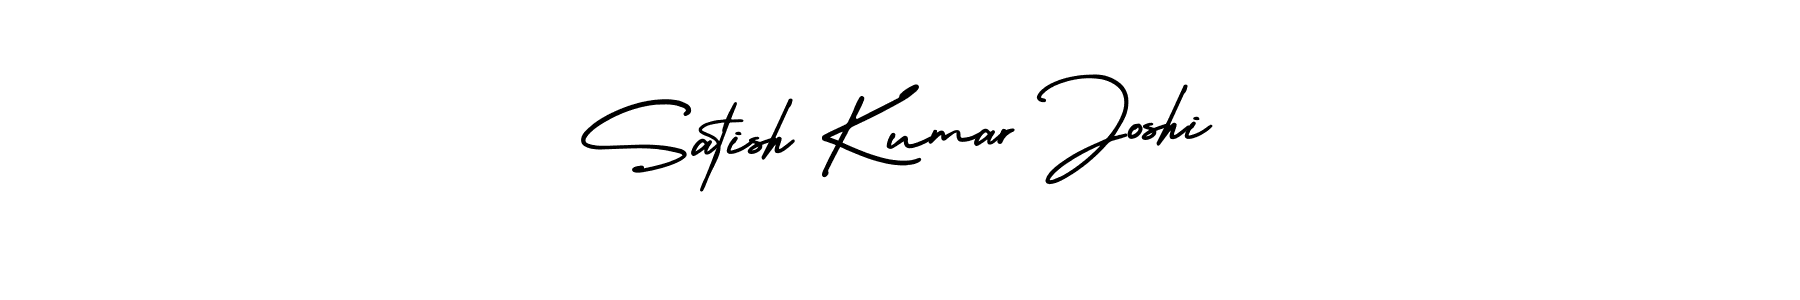 Satish Kumar Joshi